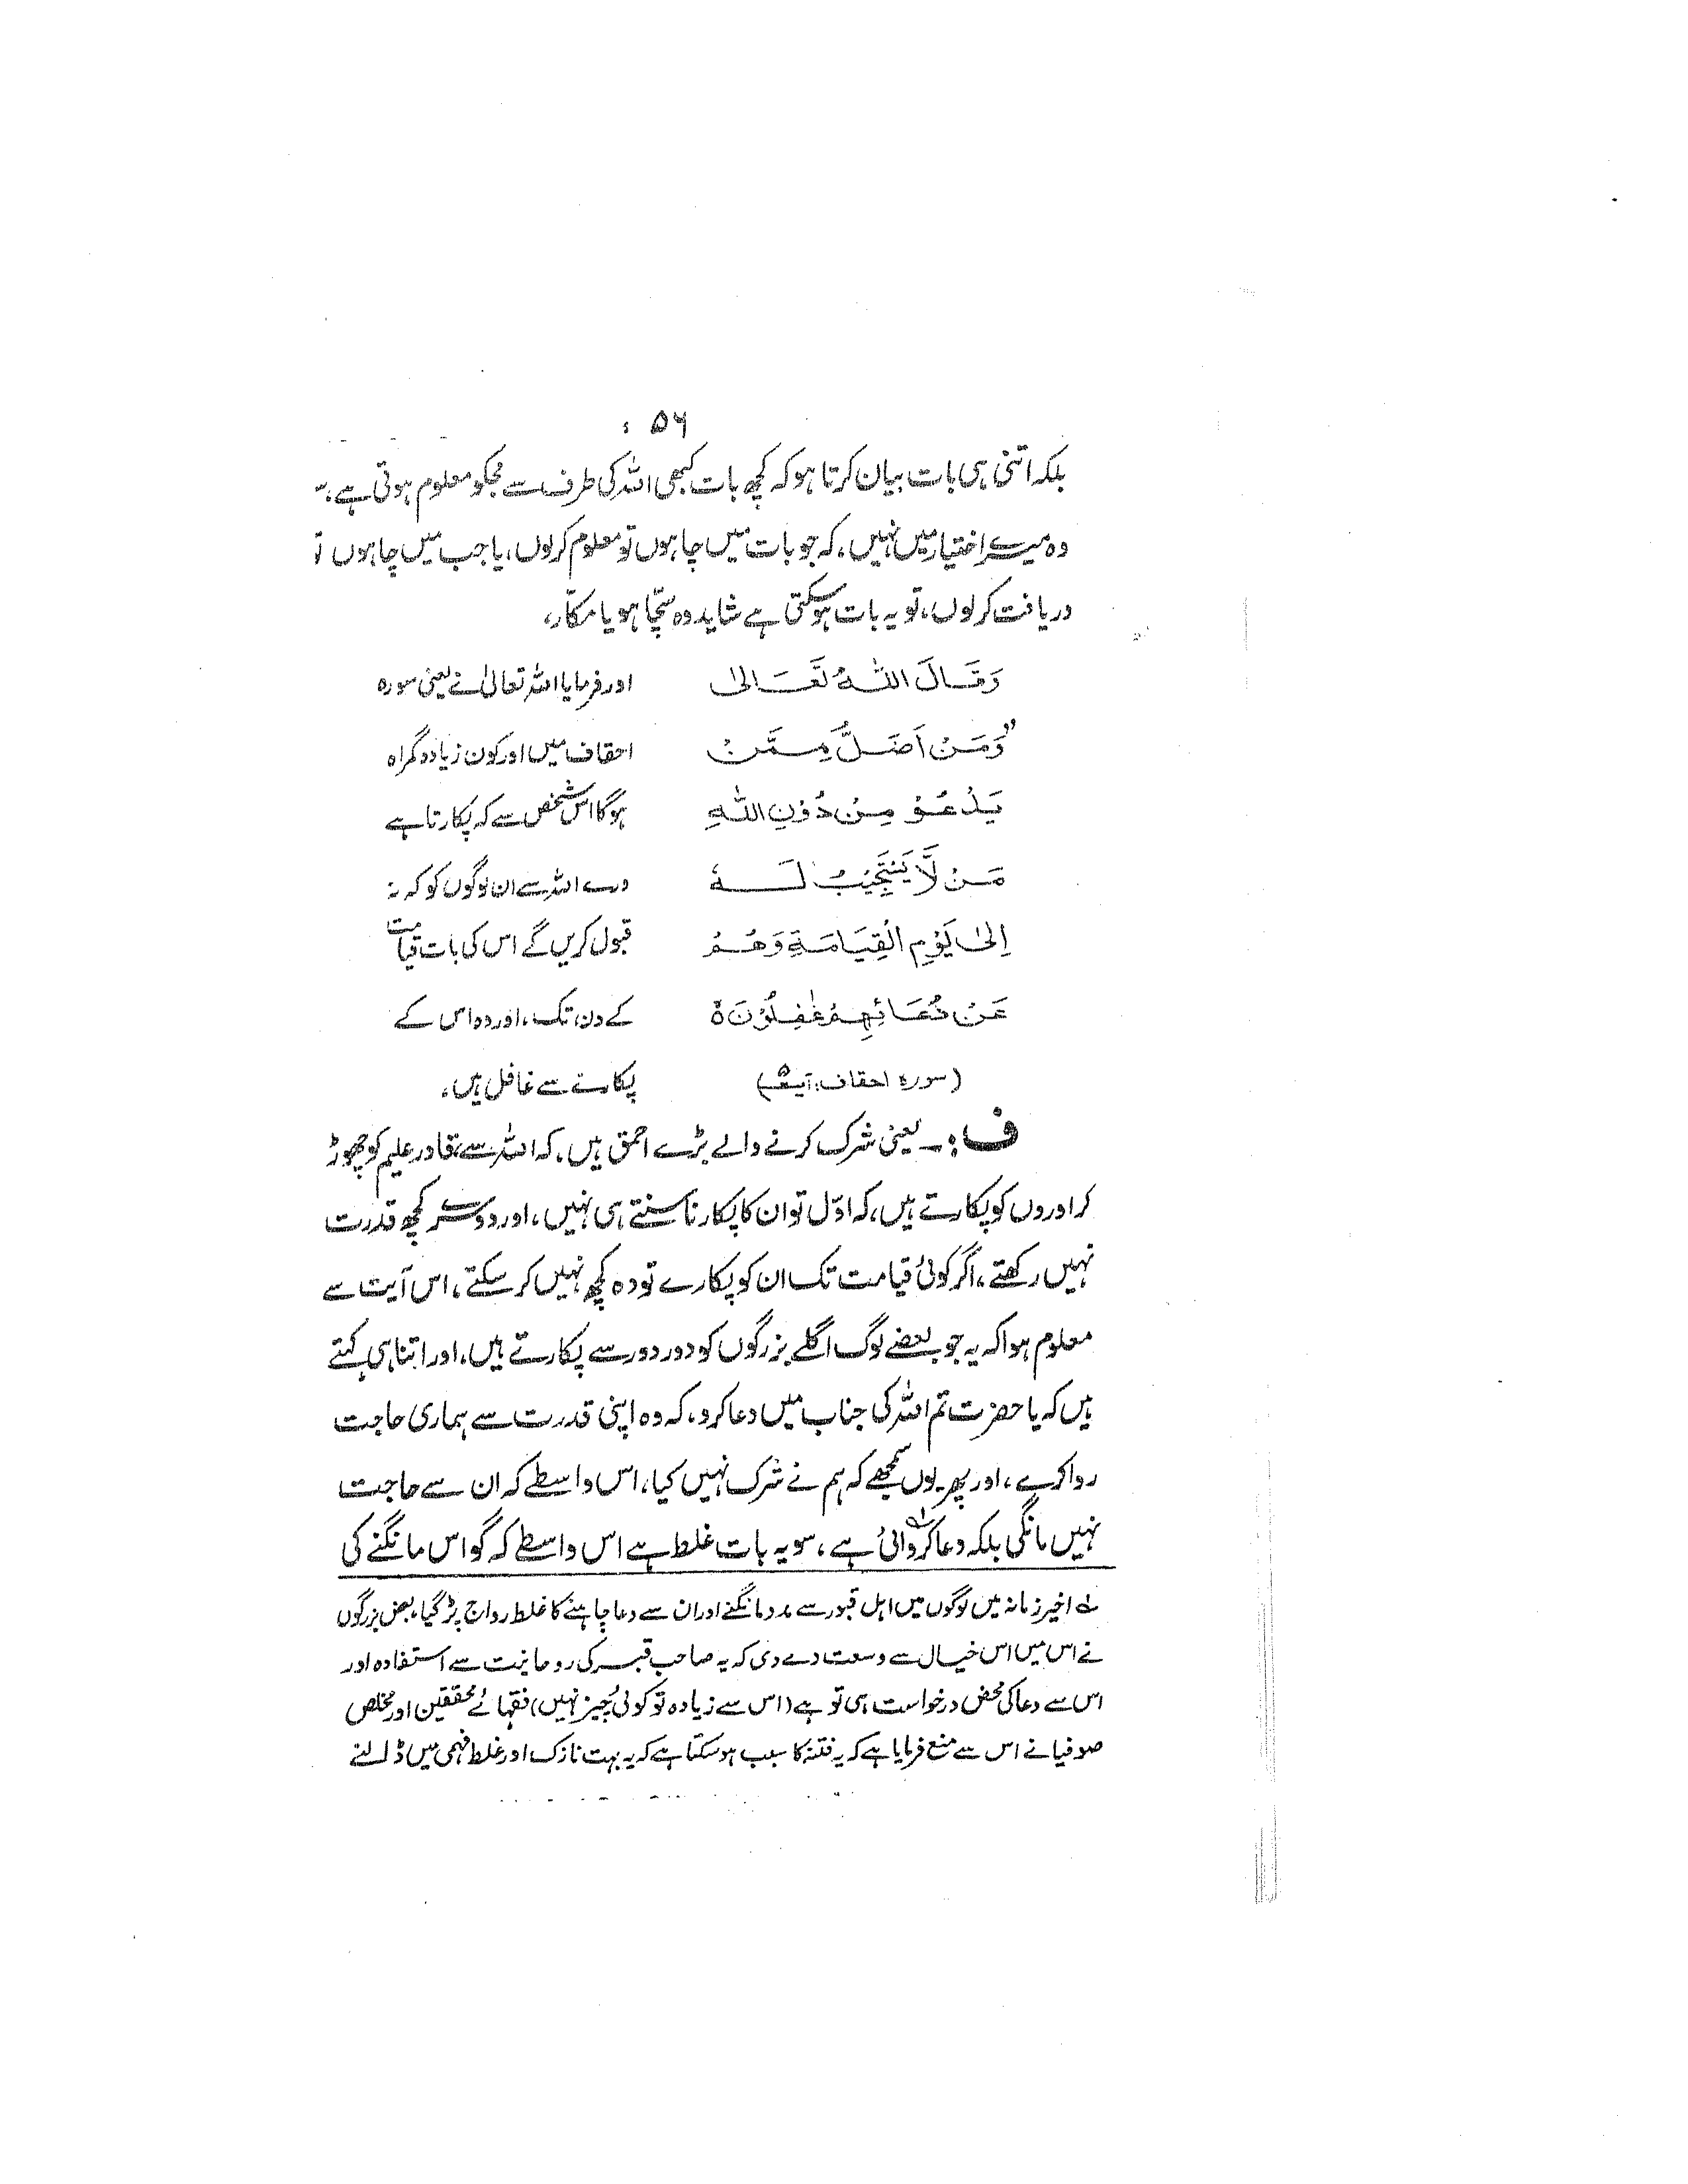 ۵۶
بلکہ اتنی ہی بات بیان کرتا ہو کہ کچھ بات کبھی اللہ کی طرف سے مجکو معلوم ہوتی ہے،
وہ میرے اختیار میں نہیں، کہ جو بات میں چاہوں تو معلوم کرلوں، یا جب میں چاہوں تو
دریافت کرلوں، تو یہ بات ہوسکتی ہے شاید وہ سچّا ہو یا مکّار،
وَقَالَ اللّٰهُ تَعَالیٰ
"وَمَنْ اَضَلُّ مِمَّنْ
یَدْعُوْ مِنْ دُوْنِ اللّٰهِ
مَنْ لَّا یَسْتَجِیْبُ لَهٗ
اِلیٰ یَوْمِ الْقِیَامَةِ وَهُمْ
عَنْ دُعَائِهِمْ غٰفِلُوْنَ ۃ
(سورہ احقاف: آیت ۵)
اور فرمایا اللہ تعالیٰ نے یعنی سورہ
احقاف میں اور کون زیادہ گمراہ
ہوگا اس شخص سے کہ پکارتا ہے
ورے اللہ سے ان لوگوں کو کہ نہ
قبول کریں گے اس کی بات قیامت
کے دن، تک، اور وہ اس کے
پکارنے سے غافل ہیں،
ف :۔ یعنی شرک کرنے والے بڑے احمق ہیں، کہ اللہ سے قادر علیم کو چھوڑ
کر اوروں کو پکارتے ہیں، کہ اوّل تو ان کا پکارنا سنتے ہی نہیں، اور دوسرے کچھ قدرت
نہیں رکھتے، اگر کوئی قیامت تک ان کو پکارے تو وہ کچھ نہیں کرسکتے، اس آیت سے
معلوم ہوا کہ یہ جو بعضے لوگ اگلے بزرگوں کو دور دور سے پکارتے ہیں، اور اتنا ہی کہتے
ہیں کہ یا حضرت تم اللہ کی جناب میں دعا کرو، کہ وہ اپنی قدرت سے ہماری حاجت
روا کرے، اور پھر یوں سمجھے کہ ہم نے شرک نہیں کیا، اس واسطے کہ ان سے حاجت
نہیں مانگی بلکہ دعا کروائی ہے، سو یہ بات غلط ہے اس واسطے کہ گو اس مانگنے کی
لہ اخیر زمانہ میں لوگوں میں اہل قبور سے مدد مانگنے اور ان سے دعا چاہنے کا غلط رواج پڑ گیا، بعض بزرگوں
نے اس میں اس خیال سے وسعت دے دی کہ یہ صاحب قبر کی روحانیت سے استفادہ اور
اس سے دعا کی محض درخواست ہی تو ہے (اس سے زیادہ تو کوئی چیز نہیں) فقہائے محققین اور مخلص
صوفیا نے اس سے منع فرمایا ہے کہ یہ فتنہ کا سبب ہوسکتا ہے کہ یہ بہت نازک اور غلط فہمی میں ڈالنے